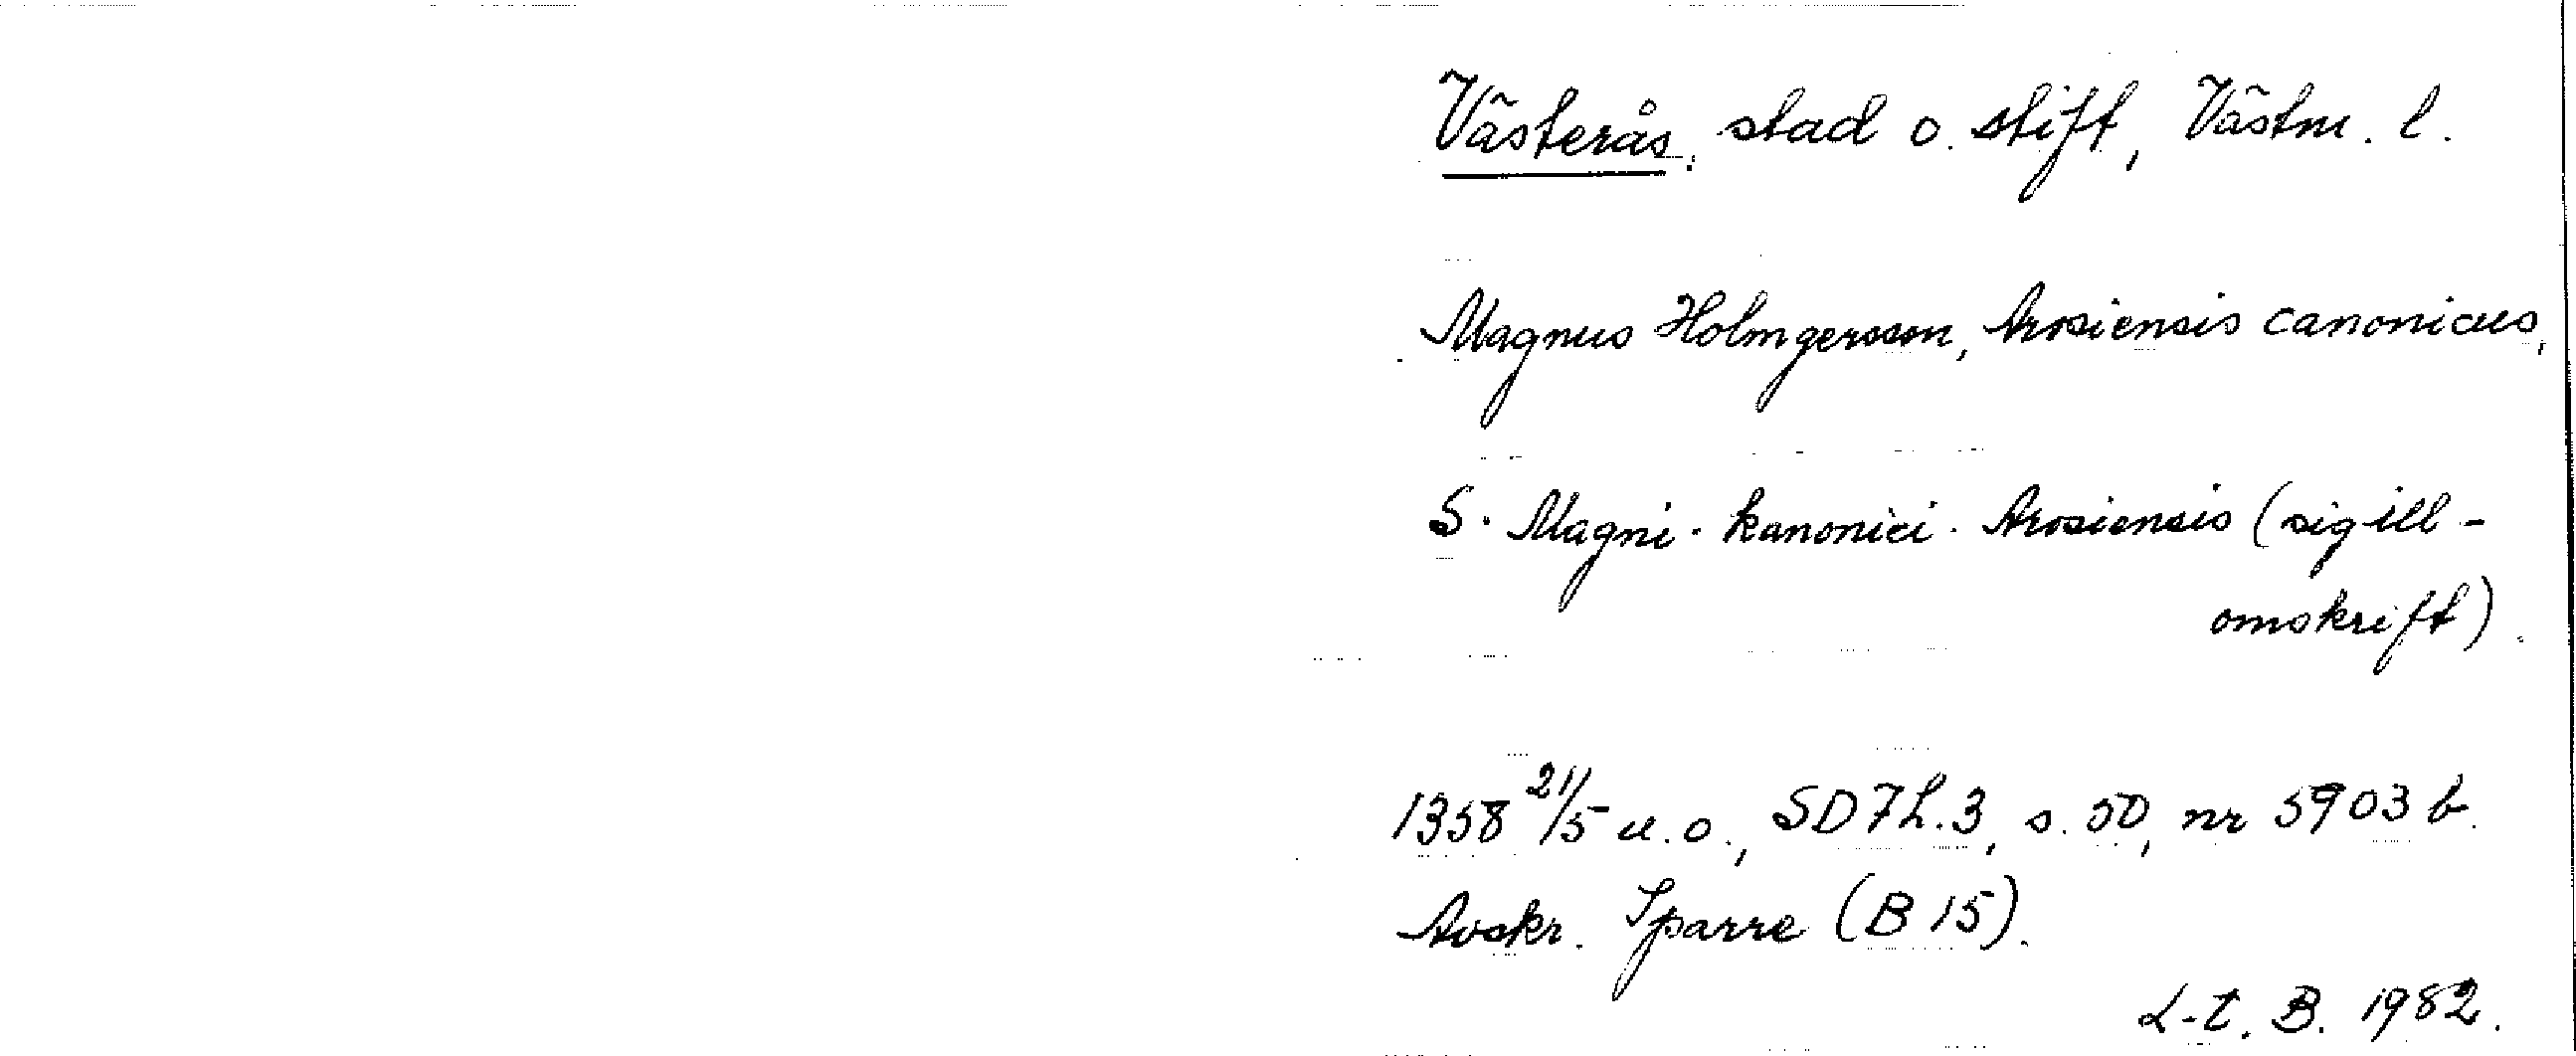 Västerås, stad o. stift, Västm. l.
Magnus Holmgersson, Arosiensis canonicus,
S. Magni. kanonici. Arosiensis (sigill-
omskrift).
1358 21/5 u.o., SD 7 h.3, s. 50, nr 5903 b.
Avskr. Sparre (B 15).
L-t. B. 1982.